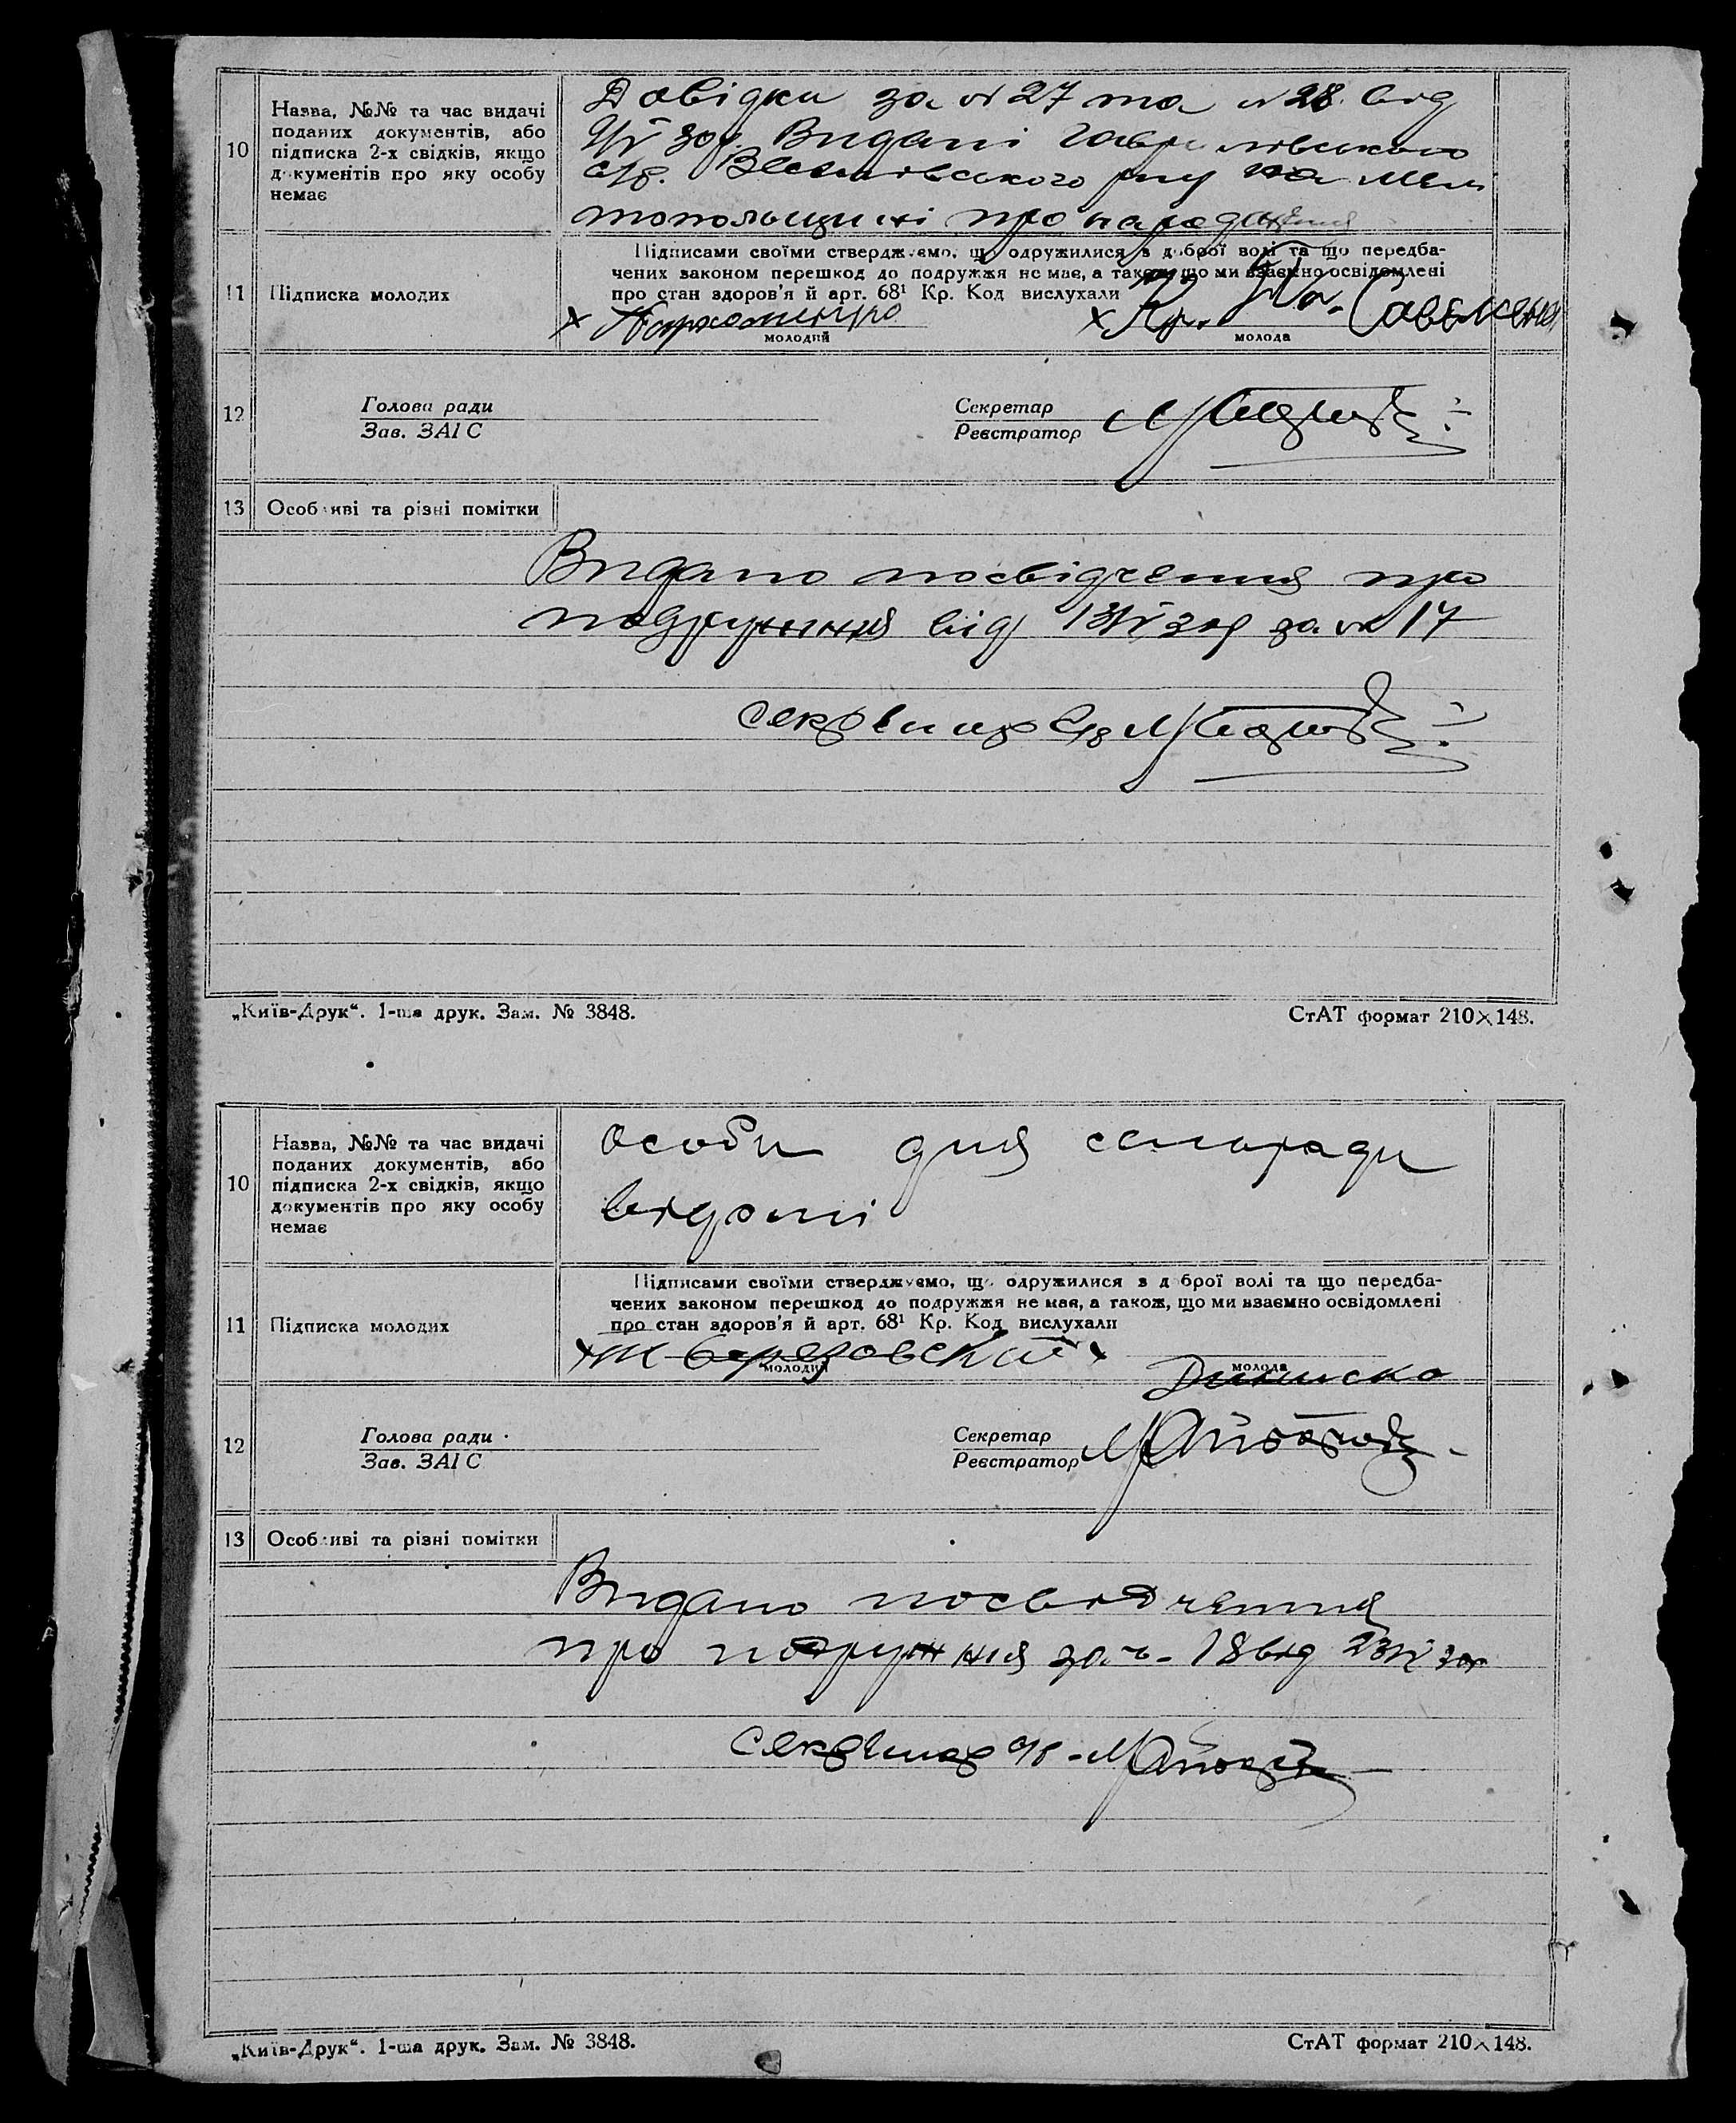 10
Назва, №№ та час видачі
поданих документів, або
підписка 2-х свідків, якщо
документів про яку особу
немає
Довідки за № 27 та № 28 від
Видані
с/р. району на
про народження
11
Підписка молодих
Підписами своїми стверджуємо, що одружилися з доброї волі та що передба-
чених законом перешкод до подружжя не має, а також, що ми взаємно освідомлені
про стан здоров'я й арт. 68¹ Кр. Код вислухали
х Пархоменко
х
молодий
молода
12
Голова ради
Зав. ЗАГС
Секретар
Реєстратор
13
Особливі та різні помітки
Видано посвідчення про
подружжя від за № 17
секретар с/р
„Київ-Друк“. 1-ша друк. Зам. № 3848.
СтАТ формат 210×148.
10
Назва, №№ та час видачі
поданих документів, або
підписка 2-х свідків, якщо
документів про яку особу
немає
особи для сельради
відомі
11
Підписка молодих
Підписами своїми стверджуємо, що одружилися з доброї волі та що передба-
чених законом перешкод до подружжя не має, а також, що ми взаємно освідомлені
про стан здоров'я й арт. 68¹ Кр. Код вислухали
х Березовский х
молодий
молода
12
Голова ради
Зав. ЗАГС
Секретар
Реєстратор
13
Особливі та різні помітки
Видано посвідчення
про подружжя за № 18 від
секретар с/р
„Київ-Друк“. 1-ша друк. Зам. № 3848.
СтАТ формат 210×148.